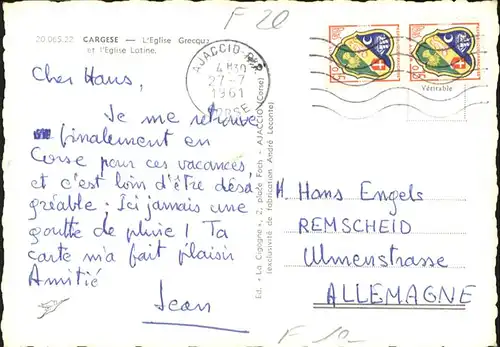 F 20
20.065.22 CARGESE — L'Eglise Grecque
et l'Eglise Latine.
AJACCIO-
4 H30
27-7
1961
CORSE
0,15
0,15
Véritable
Cher Hans,
Je me retrouve
finalement en
Corse pour ces vacances,
et c'est loin d'être désa
gréable ; Ici jamais une
goutte de pluie ! Ta
carte m'a fait plaisir
Amitié
Jean
Ed. « La Cigogne », 2, place Foch - AJACCIO (Corse)
(exclusivité de fabrication André Leconte)
H. Hans Engels
REMSCHEID
Ulmenstrasse
ALLEMAGNE